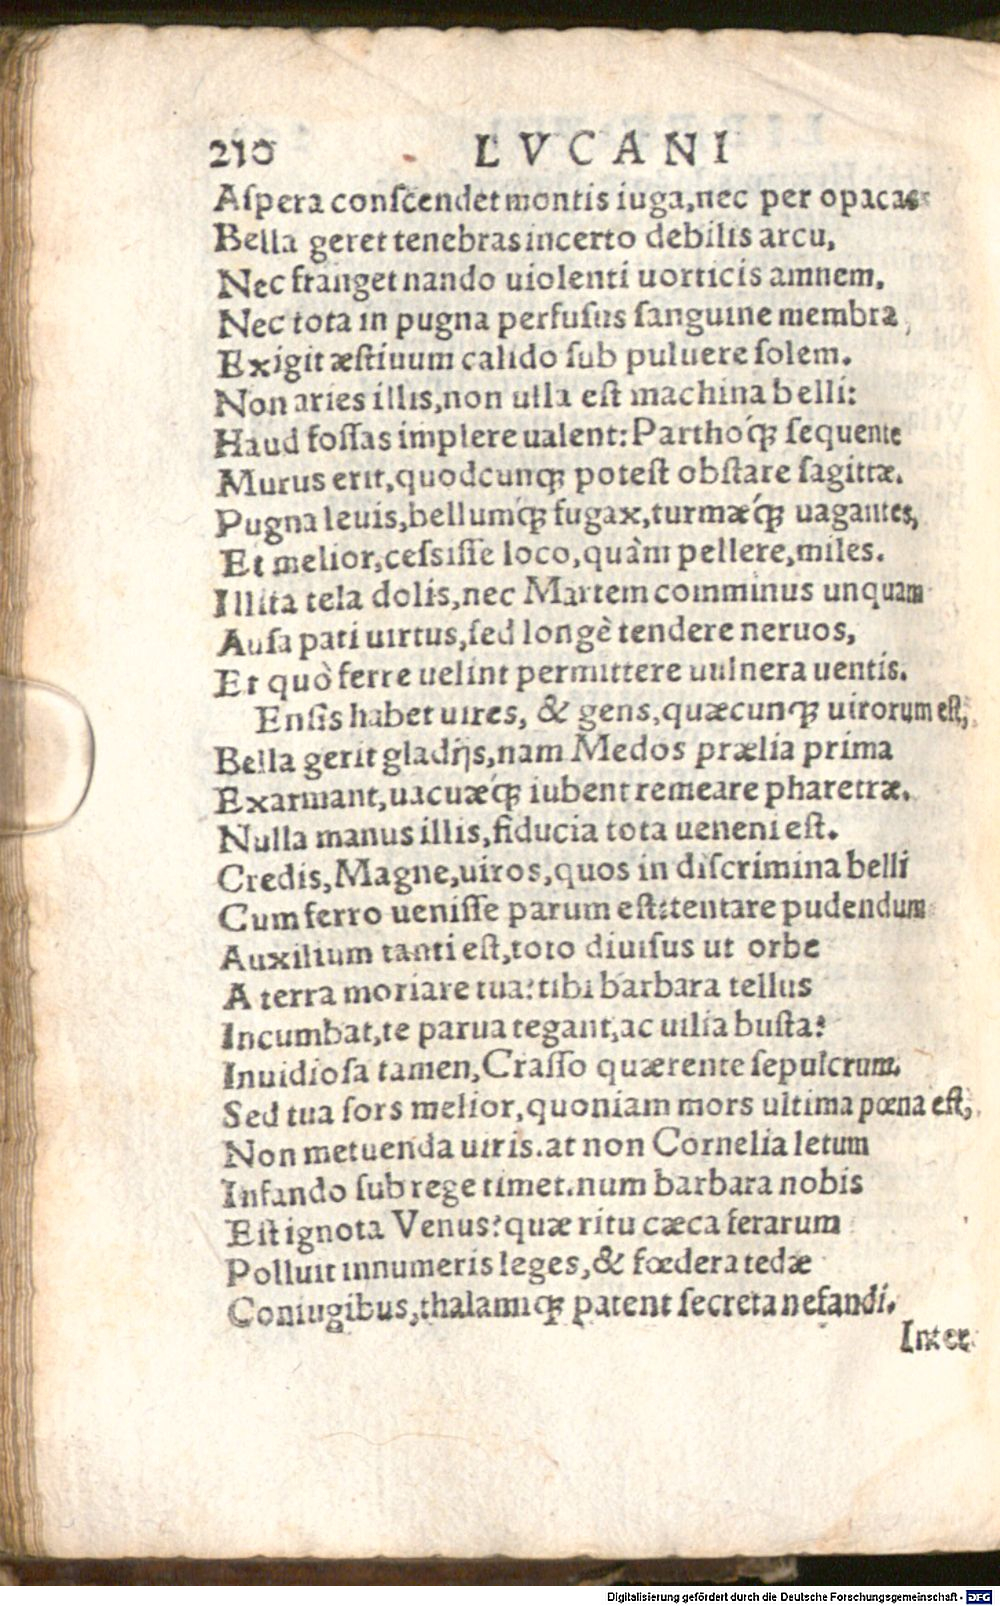 210 LVCANI
Aſpera conſcendet montis iuga, nec per opacas
Bella geret tenebras incerto debilis arcu,
Nec franget nando uiolenti uorticis amnem,
Nec tota in pugna perfuſus ſanguine membra,
Exigit æstiuum calido ſub puluere ſolem.
Non aries illis, non ulla eſt machina belli:
Haud foſſas implere ualent: Parthoq́ꝫ ſequente
Murus erit, quodcunqꝫ poteſt obſtare ſagittæ.
Pugna leuis, bellumq́ꝫ fugax, turmæq́ꝫ uagantes,
Et melior, ceſsiſſe loco, quàm pellere, miles.
Illita tela dolis, nec Martem comminus unquam
Auſa pati uirtus, ſed longè tendere neruos,
Et quò ferre uelint permittere uulnera uentis.
Enſis habet uires, & gens, quæcunqꝫ uirorum eſt,
Bella gerit gladijs, nam Medos prælia prima
Exarmant, uacuæq́ꝫ iubent remeare pharetræ.
Nulla manus illis, fiducia tota ueneni eſt.
Credis, Magne, uiros, quos in diſcrimina belli
Cum ferro ueniſſe parum eſt: tentare pudendum
Auxilium tanti eſt, toto diuiſus ut orbe
A terra moriare tua? tibi barbara tellus
Incumbat, te parua tegant, ac uilia buſta?
Inuidioſa tamen, Craſſo quærente ſepulcrum.
Sed tua ſors melior, quoniam mors ultima pœna eſt,
Non metuenda uiris. at non Cornelia letum
Infando ſub rege timet. num barbara nobis
Eſt ignota Venus? quæ ritu cæca ferarum
Polluit innumeris leges, & fœdera tedæ
Coniugibus, thalamiqꝫ patent ſecreta nefandi.
Inter
Digitalisierung gefördert durch die Deutsche Forschungsgemeinschaft - DFG